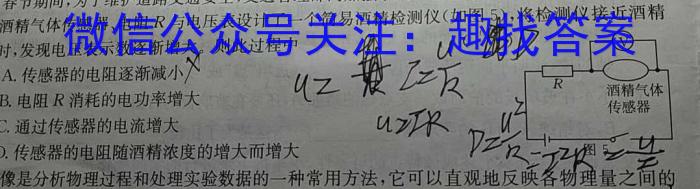 春节期间,为了维护道路交通安
酒精气体
电压表设计了一个简易酒精检测仪(如图5).将检测仪接近酒精
时,发现电压表示数逐渐增大。则此过程中
微信公众号关注:趣找答案
A.传感器的电阻逐渐减小
B.电阻R消耗的电功率增大
C.通过传感器的电流增大
D.传感器的电阻随酒精浓度的增大而增大
R
酒精气体
传感器
图5
I=U/R
U=IR
像是分析物理过程和处理实验数据的一种常用方法,它可以直观地反映各物理量之间的